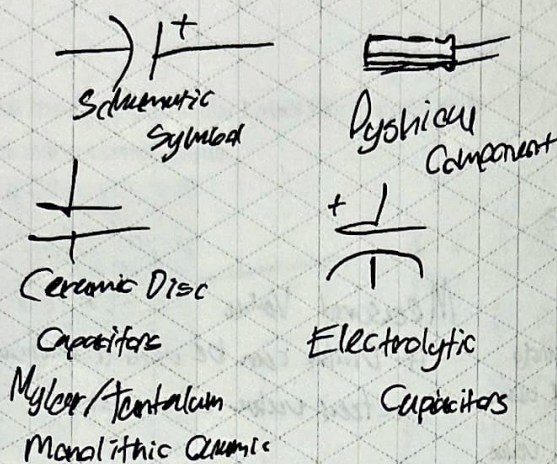 +
Schematic
Symbol
Pyshical
Component
Ceramic Disc
Capacitors
Mylar/Tantalum
Monolithic Ceramic
+
Electrolytic
Capacitors